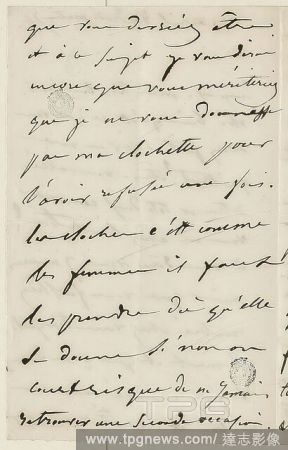 que vous dussiez être
et à ce sujet je vous dirai
encore que vous mériteriez
que je ne vous donnasse
pas ma clochette pour
l'avoir refusée une fois.
les cloches c'est comme
les femmes il faut
les prendre dès qu'elle
se donne si non on
court risque de ne jamais
retrouver une seconde occasion
TPG
www.tpgnews.com / 達志影像